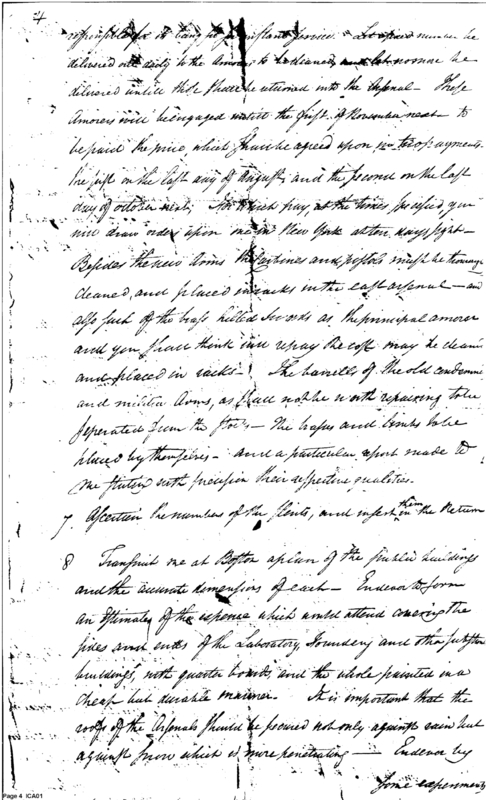 4
responsible for it being fit for instant service. Let a paid number be
delivered out daily to the Armorers to be cleaned, and let no more be
delivered untill those shall be returned into the Arsenal – These
Amorers will be engaged until the first of November next – to
be paid the price which shall be agreed upon, in two payments.
the first on the last day of August, and the second on the last
day of october next, for which pay, at the times specified, you
will draw orders upon me in New York at ten days sight –
Besides the new Arms the Carbines and pistols must be thoroug
cleaned, and placed in racks in the east arsenal – and
also such of the brass hilted swords as the principal amorer
and you shall think will repay the cost may be cleaned
and placed in racks – The barrells of the old condemne
and militia Arms, as shall not be worth repairing to be
seperated from the stocks – The brass and limbs to be
placed by themselves – and a particular report made to
me stating with precision their respective qualities.
7. Ascertain the numbers of the flints, and insert them in the Return
8 Transmit me at Boston a plan of the public buildings
and the accurate demensions of each – Endevor to form
an Estimate of the expense which would attend covering the
sides and ends of the Laboratory, Foundery and other
buildings, with quarter boards, and the whole painted in a
cheap but durable manner. It is important that the
roofs of the Arsenals should be secured not only against rain but
against snow which is more penetrating – Endevor by
some experiments
Page 4 ICA01